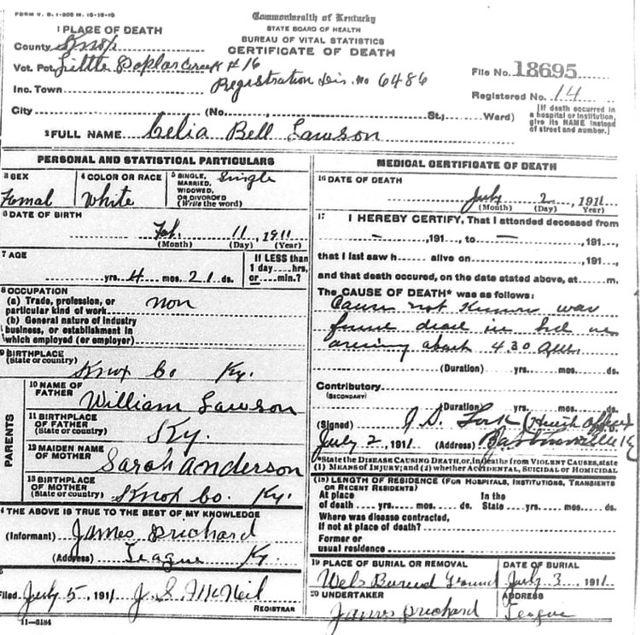 FORM V. S. 1-
Commonwealth of Kentucky
STATE BOARD OF HEALTH
BUREAU OF VITAL STATISTICS
CERTIFICATE OF DEATH
1 PLACE OF DEATH
County Knox
Vot. Pct. Little Poplar Creek #16
Registration Dis. No 6486
File No. 18695
Inc. Town
Registered No. 14
City (No. St., Ward)
[If death occurred in a hospital or institution, give its NAME instead of street and number.]
2 FULL NAME Celia Bell Lawson
PERSONAL AND STATISTICAL PARTICULARS
3 SEX Femal
4 COLOR OR RACE White
5 SINGLE, MARRIED, WIDOWED, OR DIVORCED (Write the word) Single
6 DATE OF BIRTH
Feb. 11, 1911
(Month) (Day) (Year)
7 AGE
yrs. 4 mos. 21 ds.
If LESS than 1 day---hrs. or---min.?
8 OCCUPATION
(a) Trade, profession, or particular kind of work non
(b) General nature of industry business, or establishment in which employed (or employer)
9 BIRTHPLACE
(State or country) Knox Co Ky.
PARENTS
10 NAME OF FATHER William Lawson
11 BIRTHPLACE OF FATHER (State or country) Ky.
12 MAIDEN NAME OF MOTHER Sarah Anderson
13 BIRTHPLACE OF MOTHER (State or country) Knox Co. Ky.
14 THE ABOVE IS TRUE TO THE BEST OF MY KNOWLEDGE
(Informant) James Prichard
(Address) Teague Ky.
Filed July 5, 1911 J. S. McNeil
REGISTRAR
MEDICAL CERTIFICATE OF DEATH
16 DATE OF DEATH
July 2, 1911
(Month) (Day) (Year)
17 I HEREBY CERTIFY, That I attended deceased from
—, 191..., to —, 191...,
that I last saw h alive on, 191...,
and that death occured, on the date stated above, at m.
The CAUSE OF DEATH* was as follows:
Cause not known was
found dead in bed on
arising about 4.30 AM
(Duration) yrs. mos. ds.
Contributory
(SECONDARY)
(Duration) yrs. mos. ds.
(Signed) J. D.
July 2, 1911 (Address) Barbourville Ky
*State the DISEASE CAUSING DEATH, or, in deaths from VIOLENT CAUSES, state (1) MEANS OF INJURY; and (2) whether ACCIDENTAL, SUICIDAL or HOMICIDAL
(18) LENGTH OF RESIDENCE (FOR HOSPITALS, INSTITUTIONS, TRANSIENTS OR RECENT RESIDENTS)
At place of death yrs. mos. ds. In the State yrs. mos. ds.
Where was disease contracted, if not at place of death?
Former or usual residence
19 PLACE OF BURIAL OR REMOVAL
Wels Buriel Ground
DATE OF BURIAL
July 3, 1911
20 UNDERTAKER
James Prichard
ADDRESS
Teague
11-6184